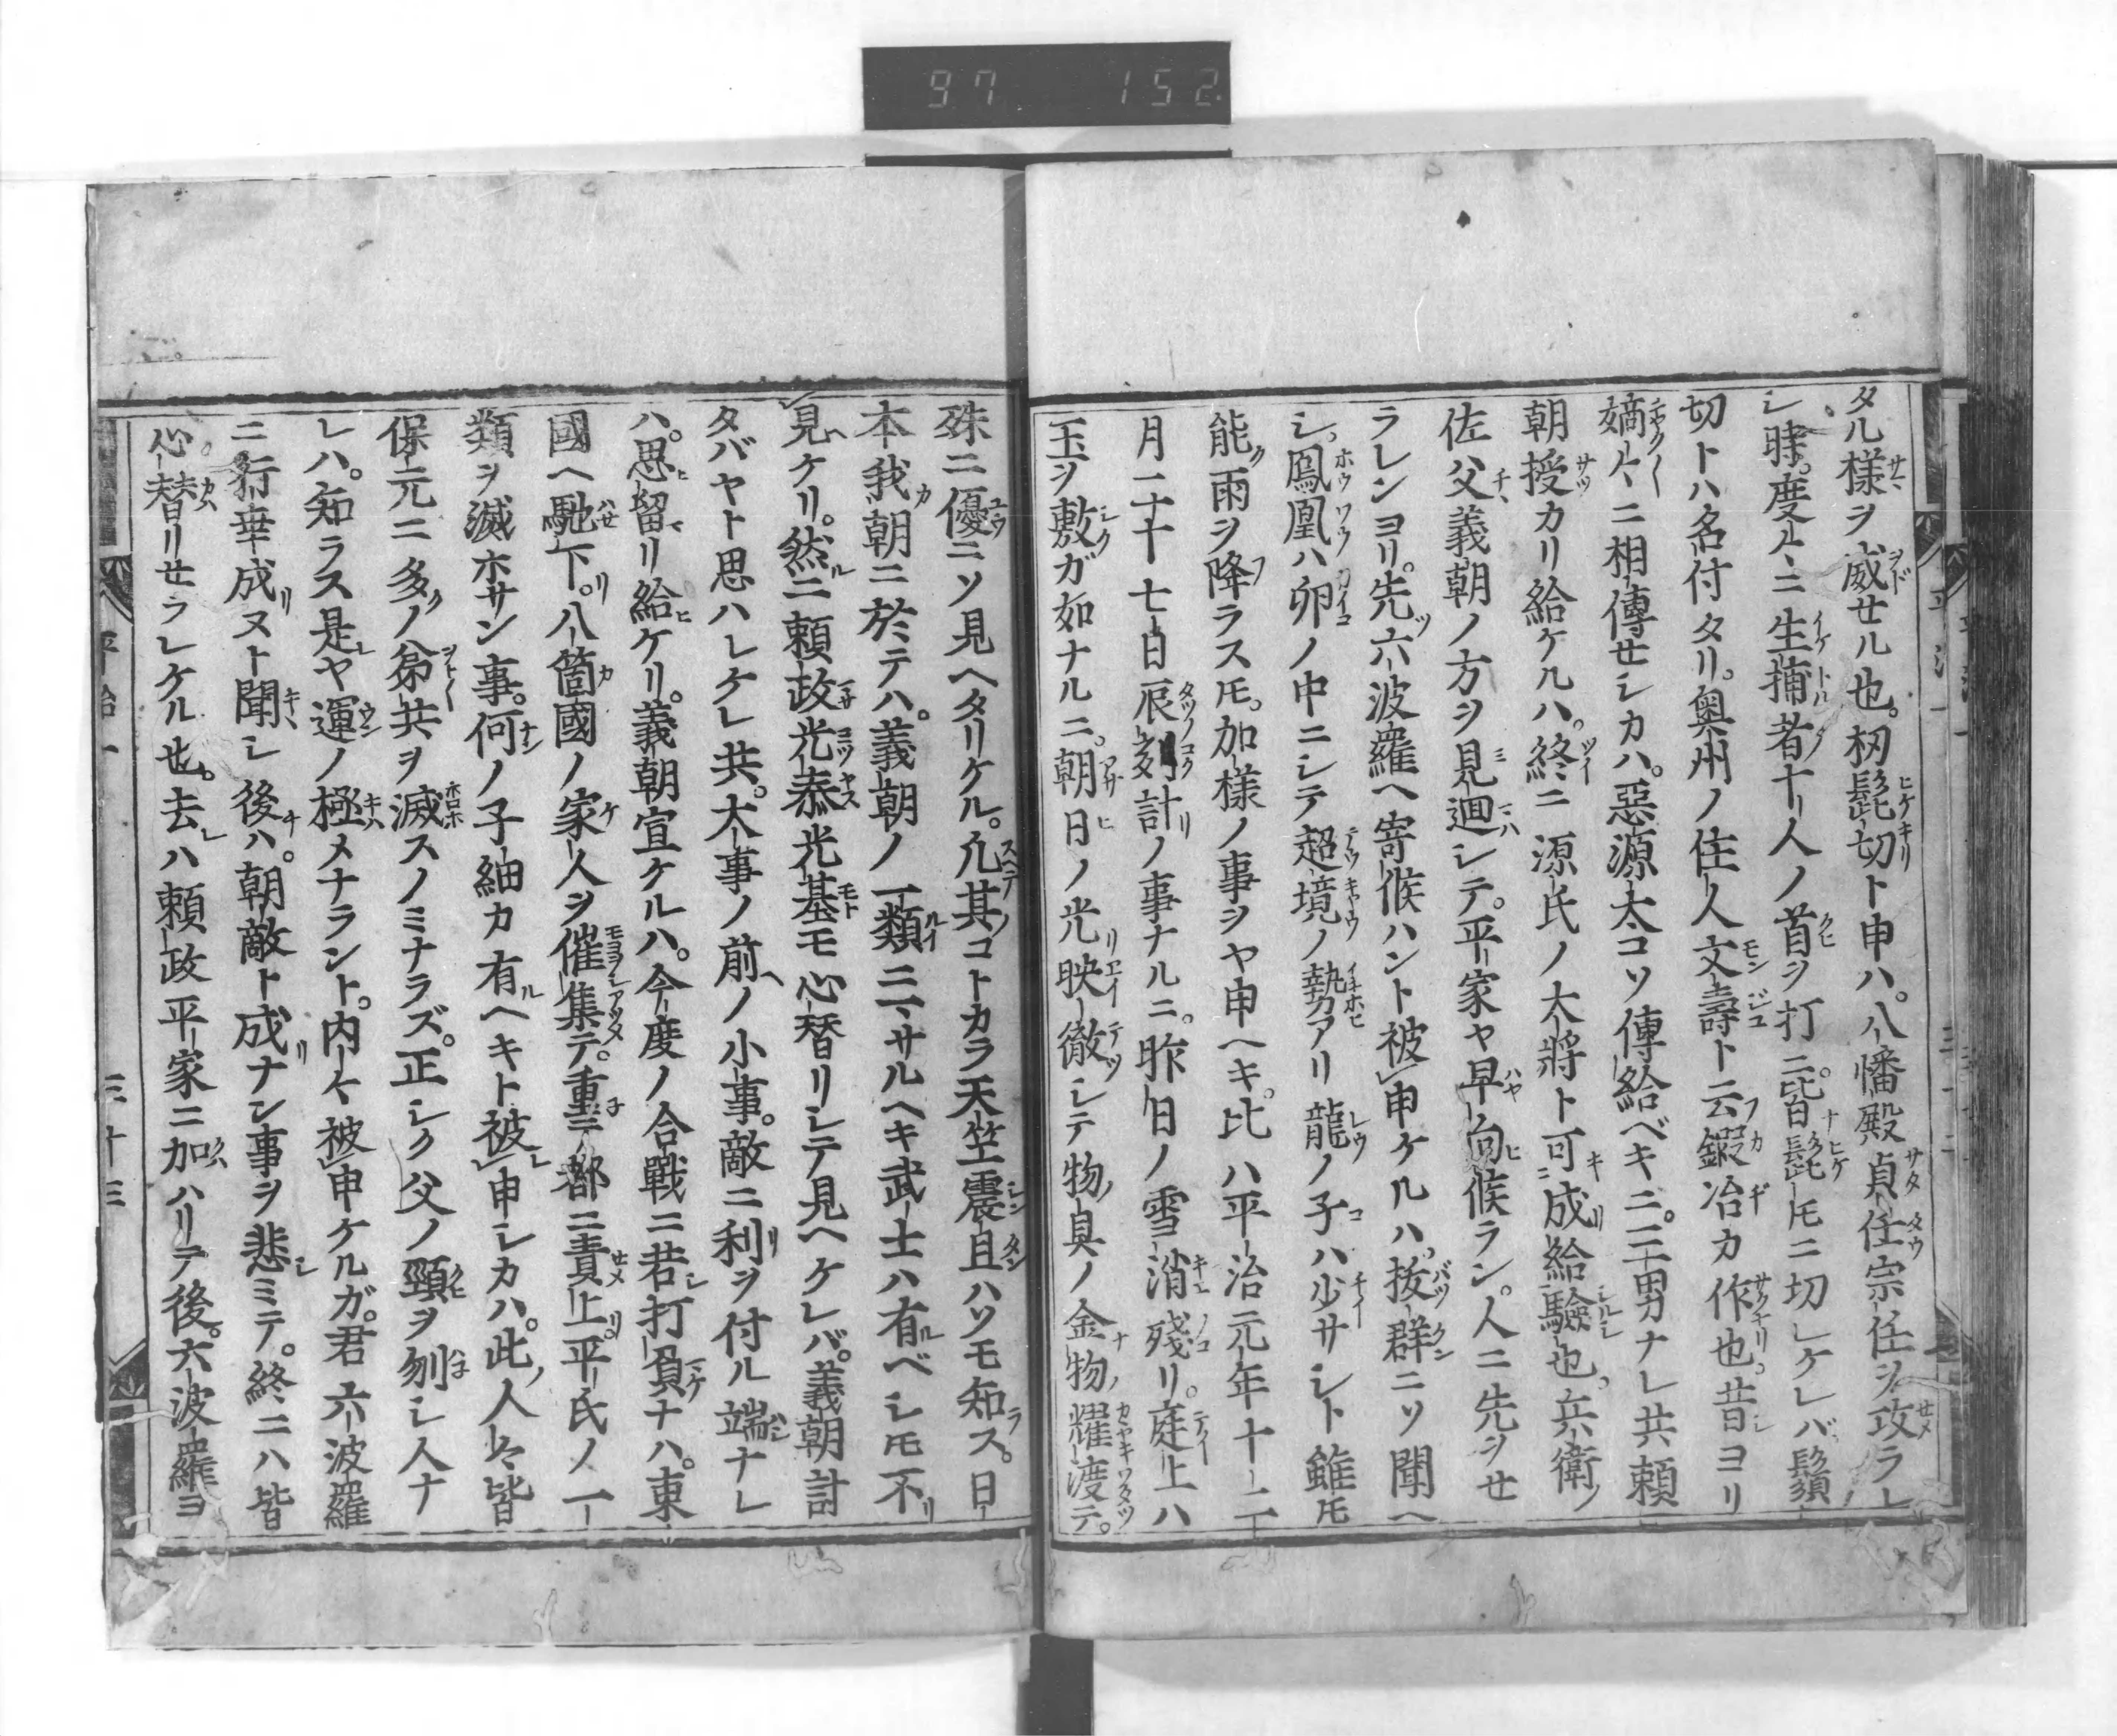 97 152
タル様ヲ威セル也。扨髭切ト申ハ。八幡殿貞任宗任ヲ攻ラレ
シ時。度々ニ生捕者十人ノ首ヲ打ニ。皆髭トモニ切レケレバ。鬚
切トハ名付タリ。奥州ノ住人文壽ト云鍛冶カ作也。昔ヨリ
嫡々ニ相傳セシカハ。惡源太コソ傳給ベキニ。三男ナレ共頼
朝授カリ給ケルハ。終ニ源氏ノ大將ト可成給驗也。兵衛
佐父義朝ノ方ヲ見廻シテ。平家ヤ早向候ラン。人ニ先ヲセ
ラレンヨリ。先六波羅ヘ寄候ハント被申ケルハ。抜群ニソ聞ヘ
シ。鳳凰ハ卵ノ中ニシテ超境ノ勢アリ龍ノ子ハ少サシト雖トモ
能雨ヲ降ラストモ。加様ノ事ヲヤ申ヘキ。比ハ平治元年十二
月二十七日辰刻計ノ事ナルニ。昨日ノ雪消残リ。庭上ハ
玉ヲ敷ガ如ナルニ。朝日ノ光映徹シテ物具ノ金物耀渡テ。
殊ニ優ニソ見ヘタリケル。凡其コトカラ天竺震旦ハソモ知ス。日
本我朝ニ於テハ。義朝ノ一類ニマサルヘキ武士ハ有ベシトモ不
見ケリ。然ニ頼政光泰光基モ心替リシテ見ヘケレバ。義朝討
タバヤト思ハレケレ共。大事ノ前ノ小事。敵ニ利ヲ付ル端ナレ
ハ。思留リ給ケリ。義朝宣ケルハ。今度ノ合戰ニ若打負ナハ。東
國ヘ馳下。八箇國ノ家人ヲ催集テ。重テ都ニ責上平氏ノ一
類ヲ滅ホサン事。何ノ子細カ有ヘキト被申シカハ。此人々皆
保元ニ多ノ弟共ヲ滅スノミナラズ。正シク父ノ頸ヲ刎シ人ナ
レハ。知ラス是ヤ運ノ極メナラント。内々被申ケルガ。君六波羅
ニ行幸成ヌト聞シ後ハ。朝敵ト成ナン事ヲ悲ミテ。終ニハ皆
心替リセラレケル也。去ハ頼政平家ニ加ハリテ後。六波羅ヨ
平治一
三十三